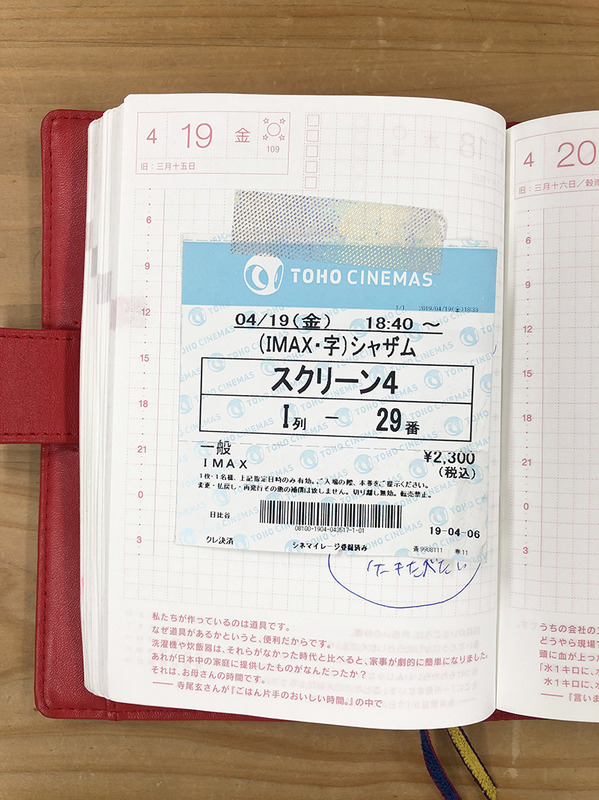 4 19 金
109
旧：三月十五日
6
9
12
15
18
21
0
3
TOHO CINEMAS
1/1 2019/04/19(金)18:33
04/19(金) 18:40 ～
(IMAX・字)シャザム
スクリーン4
I列 － 29番
一般
¥2,300
IMAX
(税込)
1枚・1名様、上記指定日時のみ有効。ご入場の際、本券をご提示ください。
変更・払戻し・再発行その他の補償は致しません。切り離し無効。転売禁止。
日比谷
19-04-06
クレ決済
シネマイレージ登録済み
私たちが作っているのは道具です。
なぜ道具があるかというと、便利だからです。
洗濯機や炊飯器は、それらがなかった時代と比べると、家事が劇的に簡単になりました。
あれが日本中の家庭に提供したものがなんだったか？
それは、お母さんの時間です。
── 寺尾玄さんが『ごはん片手のおいしい時間。』の中で
4 20
旧：三月十六日／穀雨
6
9
12
15
18
21
0
3
うちの会社の
どうやら現場で
頭に血が上った
「水1キロに、
水1キロに、
──『言いま